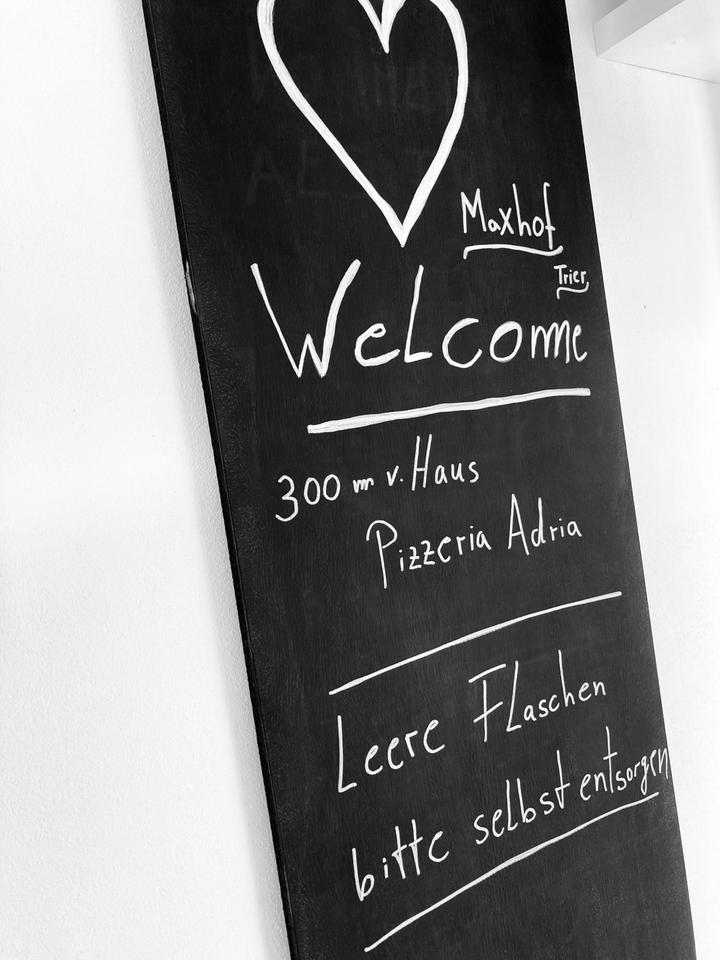 Maxhof
Trier
Welcome
300 m v. Haus
Pizzeria Adria
Leere Flaschen
bitte selbst entsorgen